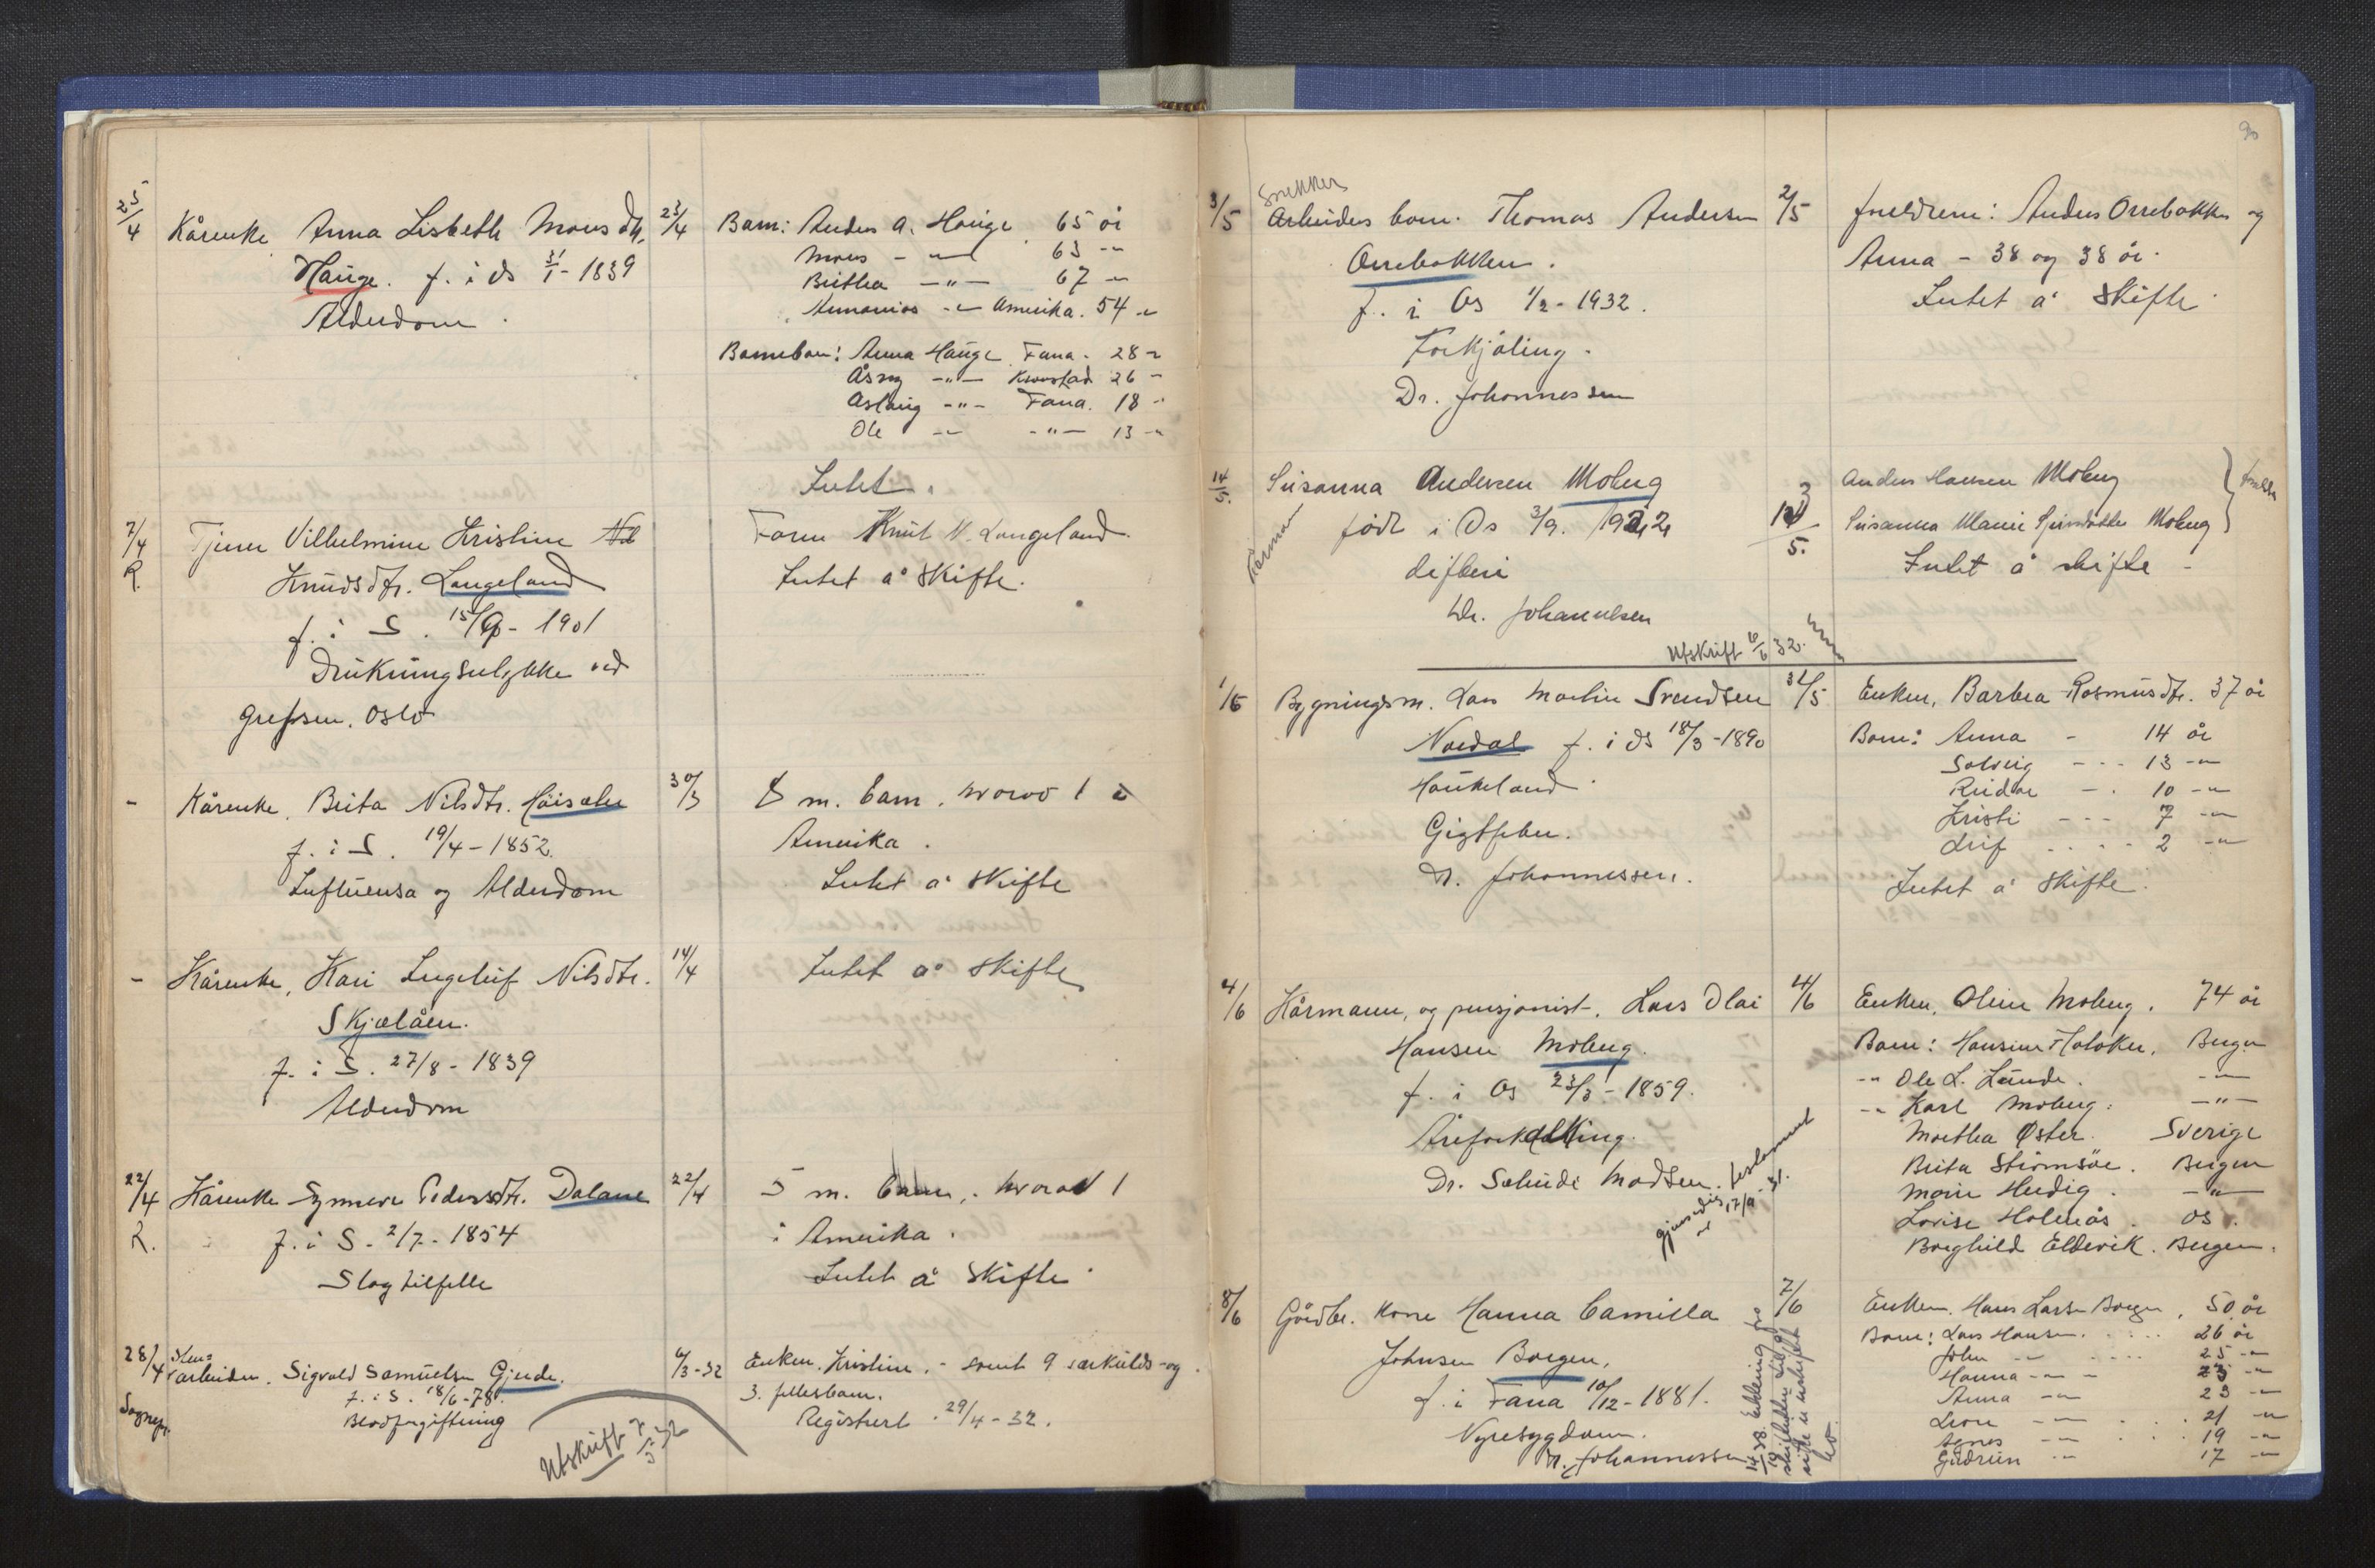 25/4 Kårenke Anna Lisbeth Monsdtr. 23/4
Hauge. f. i Os 31/1 - 1839
Alderdom.
Barn: Anders A. Hauge 65 år
Mons - " - 63 - "
Brithea - " - 67 - "
Annanias - " - Amerika. 54 - "
Barnebarn: Anna Hauge Fana. 28 - "
Åsny - " - Kronstad 26 - "
Aslaug - " - Fana. 18 - "
Ole - " - - " - 13 - "
Intet.
7/4 R. Tjener Vilhelmine Kristine
Knudsdtr. Langeland
f. i S. 15/9 - 1901
Drukningsulykke ved
Grefsen. Oslo
Faren Knut N. Langeland.
Intet å skifte.
- Kårenke, Brita Nilsdtr. Høisæter 30/3
f. i S. 19/4 - 1852.
Influensa og Alderdom
8 m. barn, hvorav 1 i
Amerika.
Intet å skifte
- Kårenke, Kari Ingeleif Nilsdtr. 14/4
Skjælåen.
f. i S. 27/8 - 1839
Alderdom
Intet å skifte
22/4 R. Kårenke Synneve Pedersdtr. Dalane 22/4
f. i S. 2/7 - 1854
Slagtilfelle
5 m. barn, hvorav 1
i Amerika.
Intet å skifte
28/4 arbeider. Sigvald Samuelsen Gjerde. 6/3-32
f. i S. 18/6-78.
Blodforgiftning
Enken. Kristine. - samt 9 særkulds- og
3. fellesbarn.
Registrert. 29/4 - 32.
Utskrift 7/5 32
90
Snekker
3/5 Arbeiders barn. Thomas Andersen 2/5
Orrebakken.
f. i Os 1/2 - 1932.
Forkjøling.
Dr. Johannessen
foreldrene: Anders Orrebakken og
Anna - 38 og 38 år.
Intet å skifte.
14/5. Susanna Andersen Moberg 13/5.
født i Os 3/9. 1922
difteri
Dr. Johannessen
Anders Hansen Moberg
Susanna Marie Moberg
Intet å skifte -
Utskrift 6/6 32.
1/6 Bygningsm. Lars Martin Svendsen 31/5
Nordal f. i Os 18/3 - 1890
Haukeland.
Gigtfeber.
Dr. Johannessen.
Enken, Barbra Rasmusdtr. 37 år
Barn: Anna - 14 år
Solveig - - - 13 - "
Reidar - . 10 - "
Kristi - - - 7 - "
Leif . . . . 2 - "
Intet å skifte.
4/6 Kårmann, og pensjonist. Lars Olai 4/6
Hansen Moberg.
f. i Os 23/3 - 1859.
Åreforkalkning.
Dr. Sælude Madsen.
gjensidig testament
17/9 - 31.
Enken, Oline Moberg. 74 år
Barn: Hansine Holoker, Bergen
- " Ole L. Lunde. - " -
- " Karl Moberg. - " -
Marthea Øster. Sverige
Brita Strømsöe. Bergen
Marie Hedig. - " -
Lovise Holmås. Os.
Borghild Eldevik. Bergen.
8/6 Gårdbr. kone Hanna Camilla 7/6
Johnsen Borgen,
f. i Fana 10/12 - 1881.
Nyresygdom.
Dr. Johannessen
Enkem. Hans Larsen Borgen, 50 år
Barn: Lars Hansen. . . . . 26 år
John - " . . . . 25 - "
Hanna - " - 23 - "
Anna - " 23 - "
- " . . . 21 - "
Agnes - " . . . 19 - "
Gudrun - " 17 - "